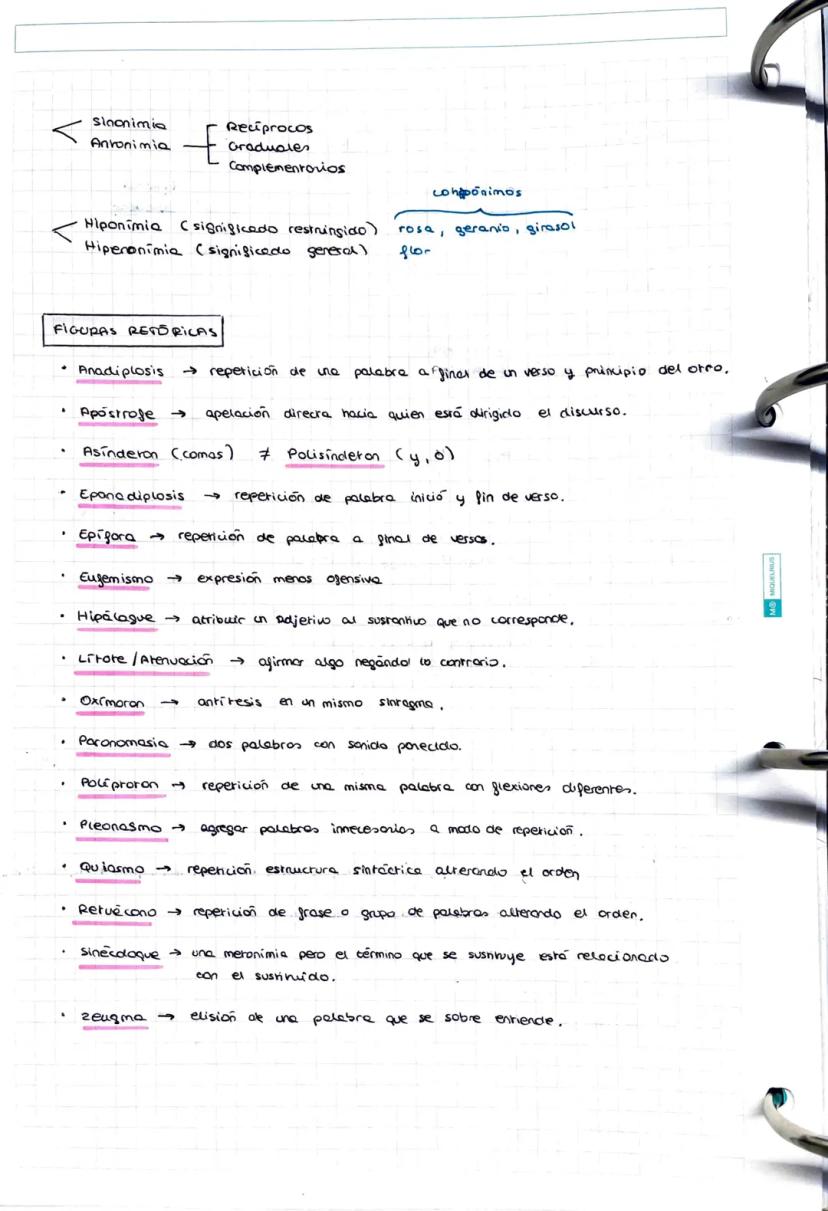 Sinonimia
Antonimia
Recíprocos
Graduales
Complementarios
cohipónimos
Hiponímia (significado restringido) rosa, geranio, girasol
Hiperonímia (significado general) flor
FIGURAS RETÓRICAS
· Anadiplosis → repetición de una palabra a final de un verso y principio del otro.
· Apóstrofe → apelación directa hacia quien está dirigido el discurso.
· Asíndeton (comas) ≠ Polisíndeton (y, o)
· Epanadiplosis → repetición de palabra inició y fin de verso.
· Epífora → repetición de palabra a final de versos.
· Eufemismo → expresión menos ofensiva
· Hipálague → atribuir un adjetivo al sustantivo que no corresponde.
· Lítote / Atenuación → afirmar algo negándol lo contrario.
· Oxímoron → antítesis en un mismo sintagma.
· Paronomasia → dos palabras con sonido parecido.
· Políptoton → repetición de una misma palabra con flexiones diferentes.
· Pleonasmo → agregar palabras innecesarias a modo de repetición.
· Quiasmo → repetición estructura sintáctica alterando el orden
· Retruécano → repetición de frase o grupo de palabras alterando el orden.
· Sinécdoque → una metonimia pero el término que se sustituye está relacionado
con el sustituido.
· Zeugma → elisión de una palabra que se sobre entiende.
MIQUELRIUS